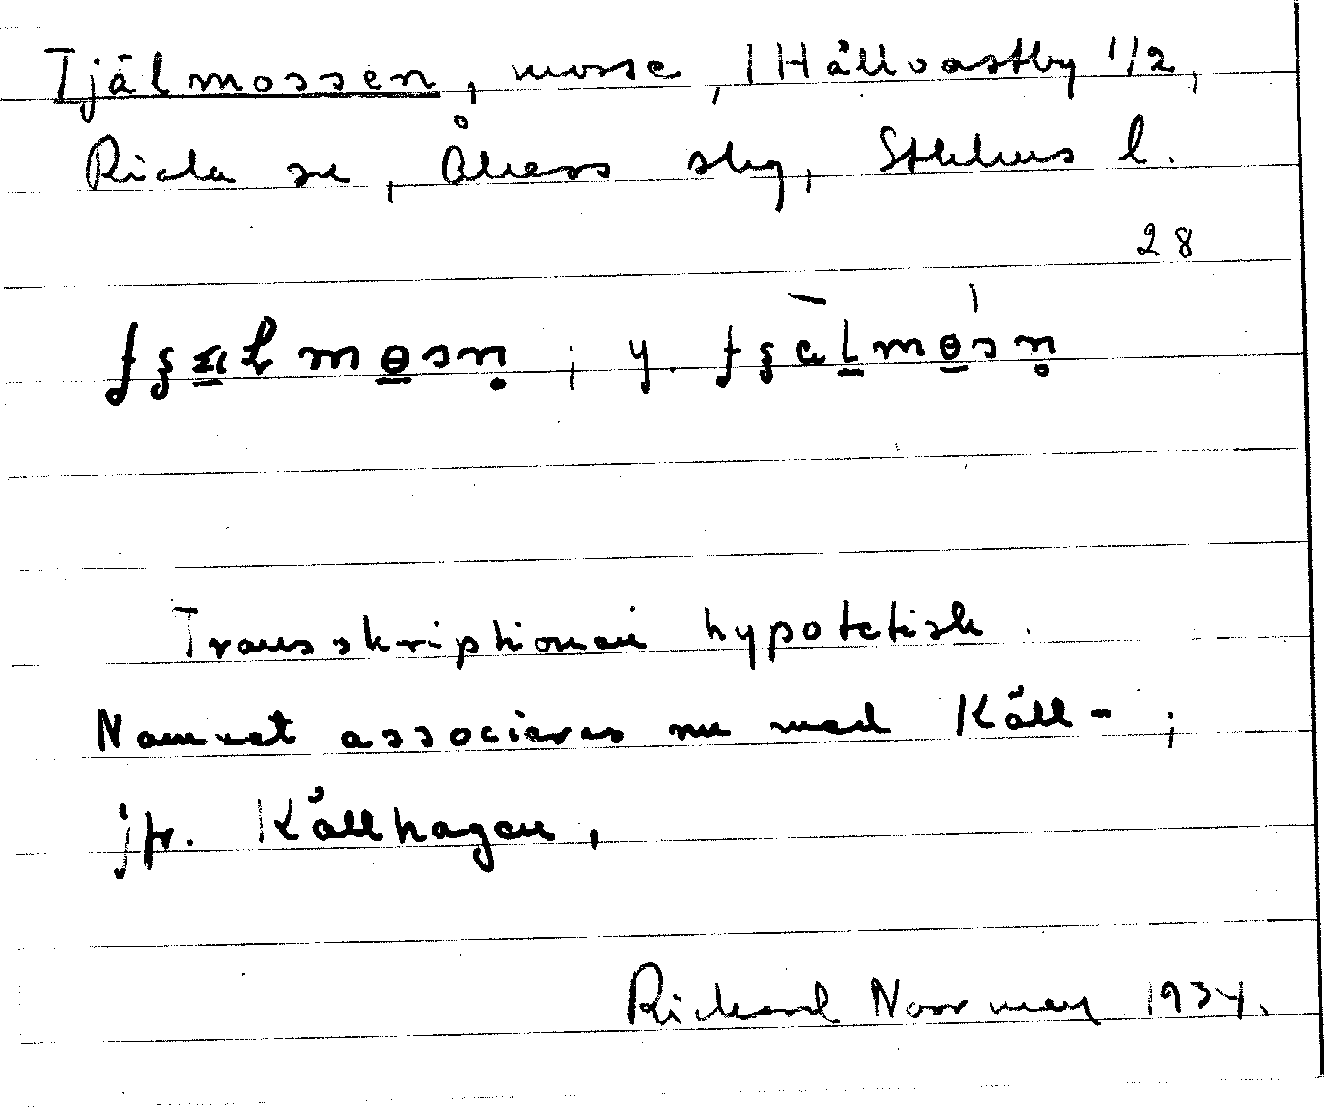 Tjälmossen, mosse, Hällvastby 1/2,
Riala sn, Åkers skg, Sthlms l.
28
; y.
Transskriptionen hypotetisk.
Namnet associeras nu med Käll-;
jfr. Källhagen.
Rickard Norrman 1934.